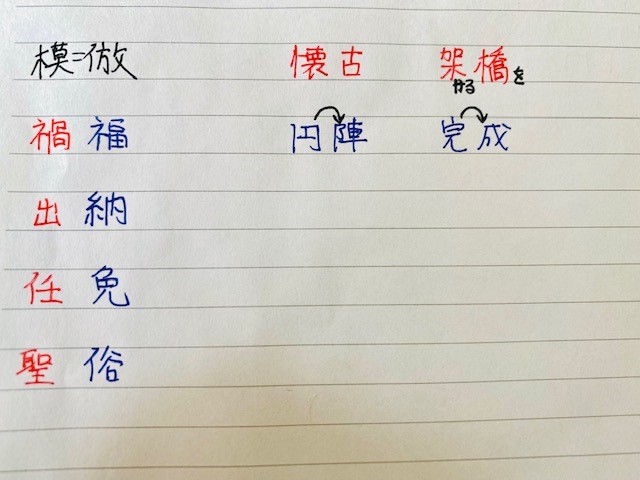 模=倣 懐古 架橋を
かる
禍福 円陣 完成
出納
任免
聖俗